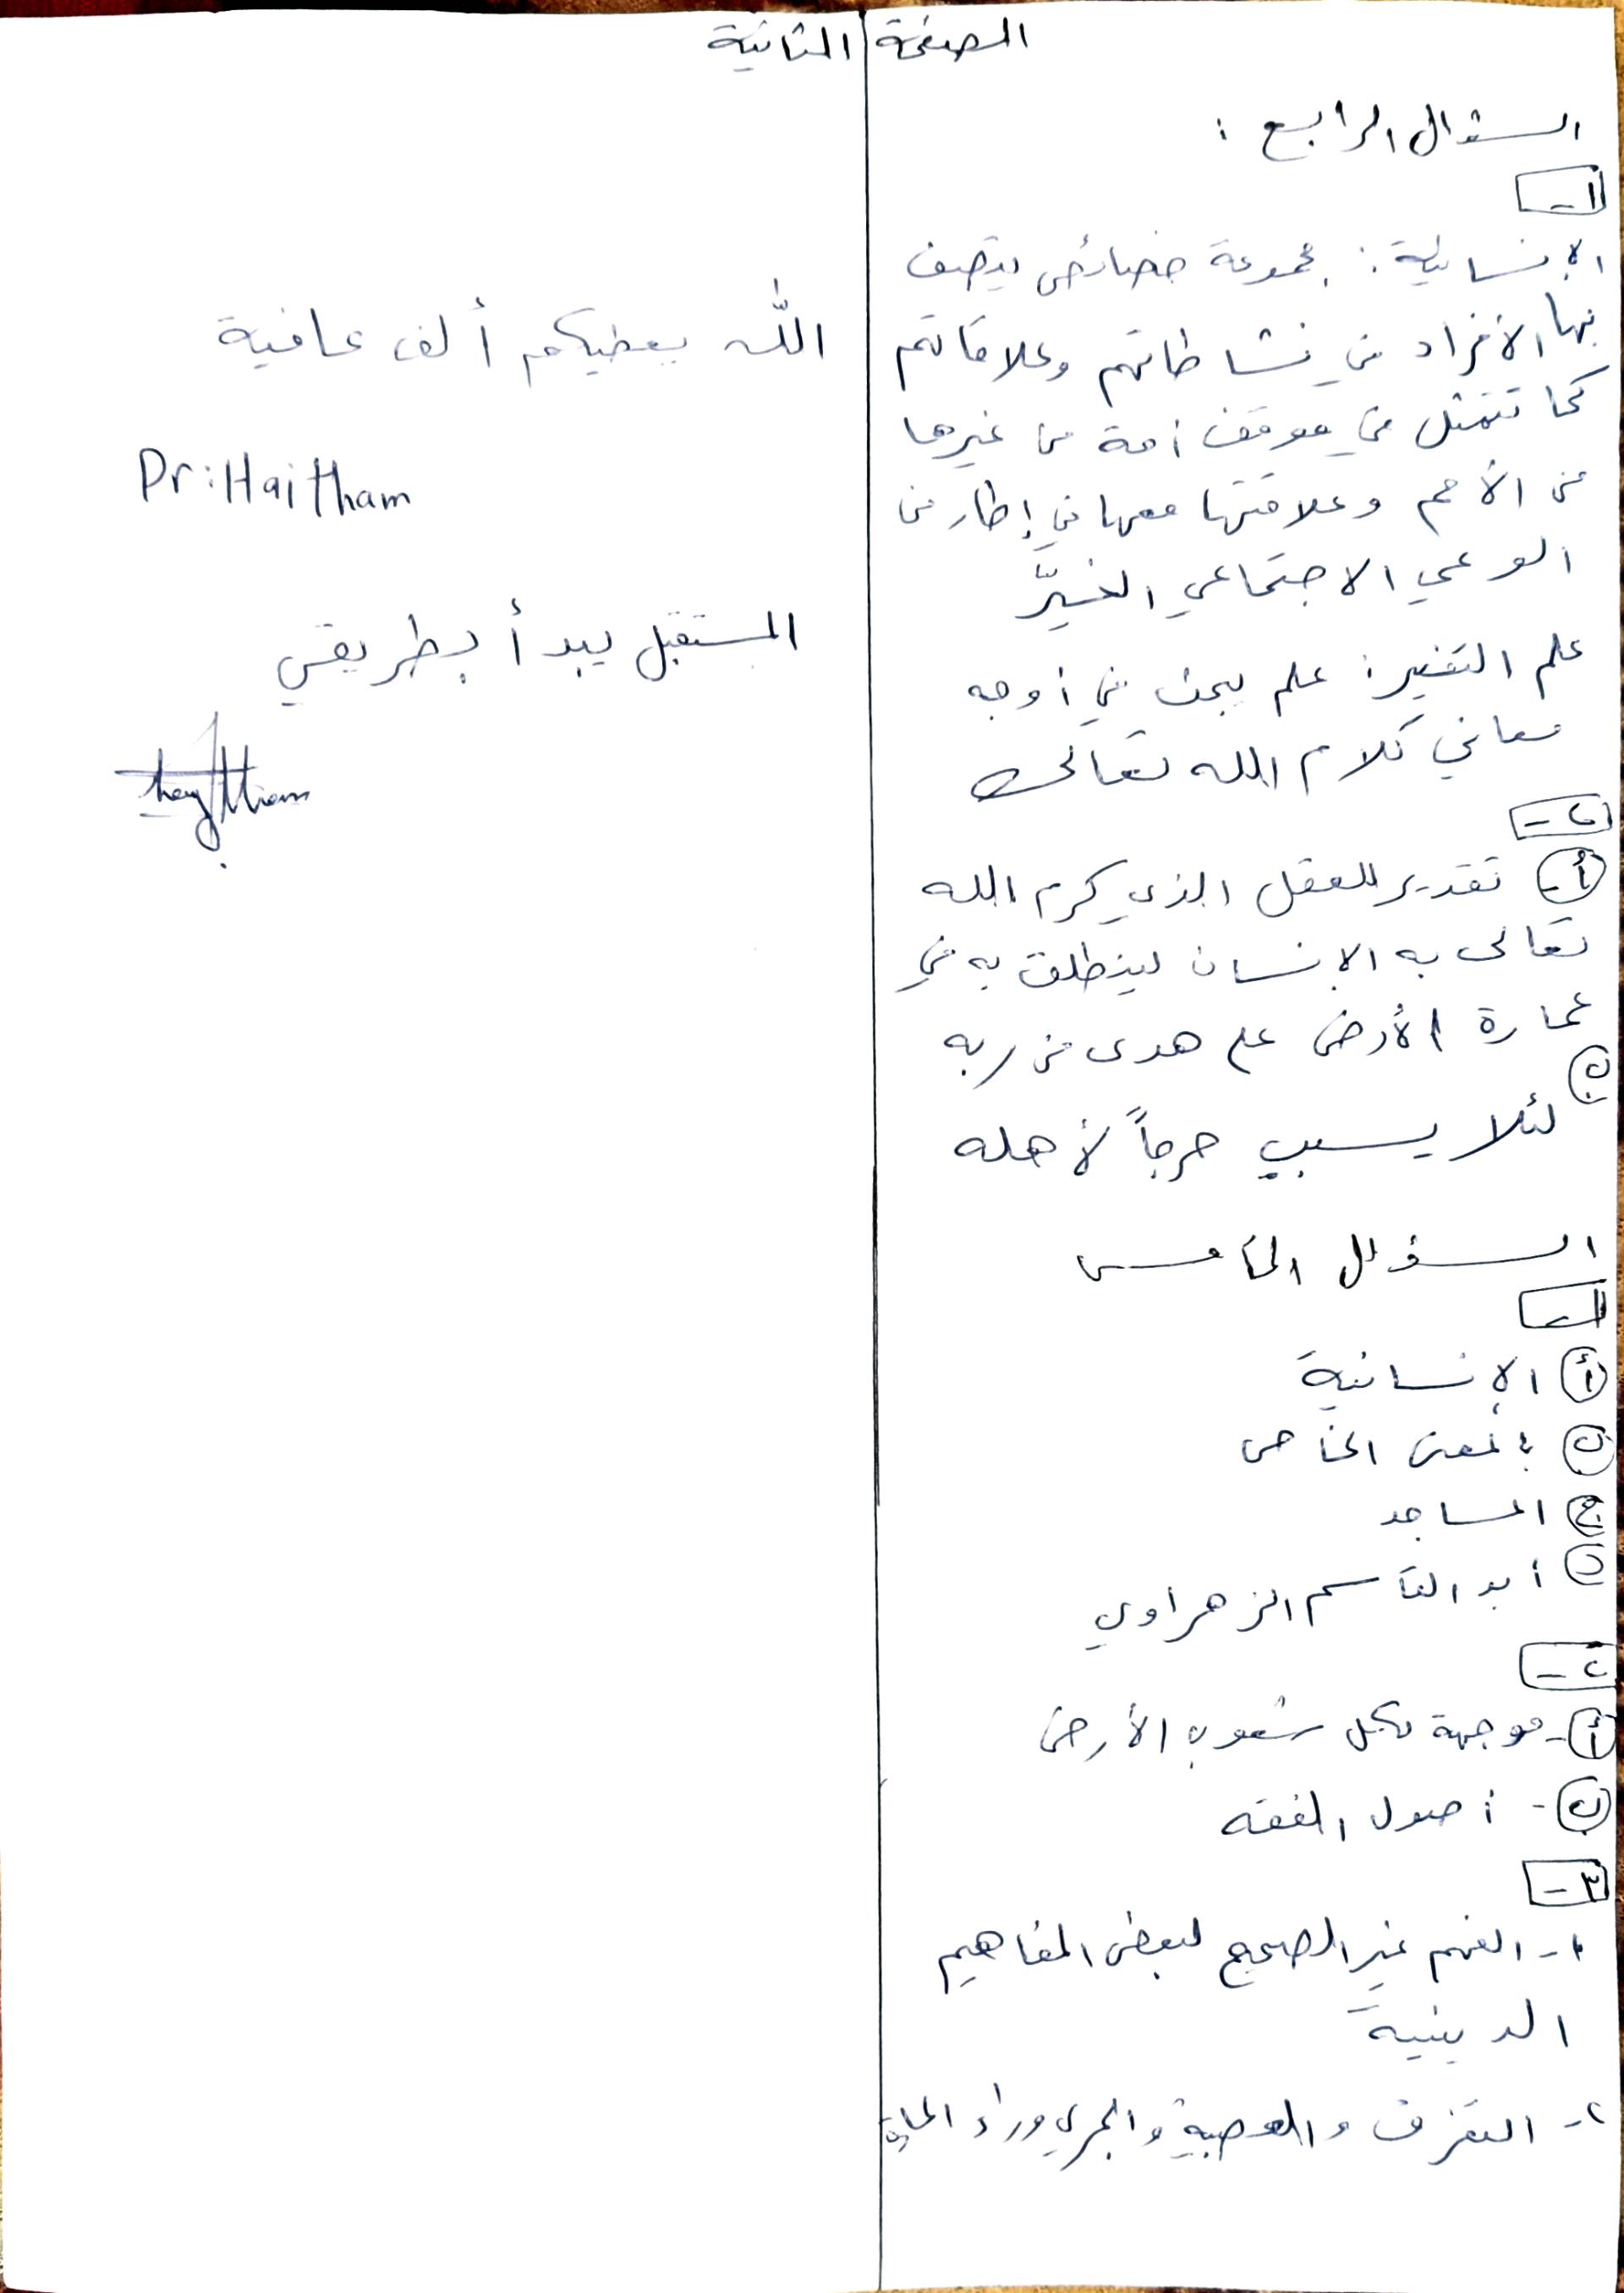 الصفحة الثانية
السؤال الرابع :
١-
الإنسانية : مجموعة خصائص يتصف
بها الأفراد في نشاطاتهم وعلاقاتهم
كما تتمثل في موقف أمة من غيرها
من الأمم وعلاقتها معها في إطار من
الوعي الاجتماعي الخيِّر
علم التفسير : علم يبحث في أوجه
معاني كلام الله تعالى
٢-
أ- تقدير للعقل الذي كرم الله
تعالى به الإنسان لينطلق به في
عمارة الأرض على هدى من ربه
ب
لئلا يسبب حرجاً لأهله
السؤال الخامس
١-
أ الإنسانية
ب بالمعنى الخاص
ج المساجد
د أبو القاسم الزهراوي
٢-
أ- موجهة لكل شعوب الأرض
ب- أصول الفقه
٣-
١- الفهم غير الصحيح لبعض المفاهيم
الدينية
٢- التفرق والعصبية والجري وراء الحياة
الله يعطيكم ألف عافية
Pr:Haitham
المستقبل يبدأ بطريقتي
haytham